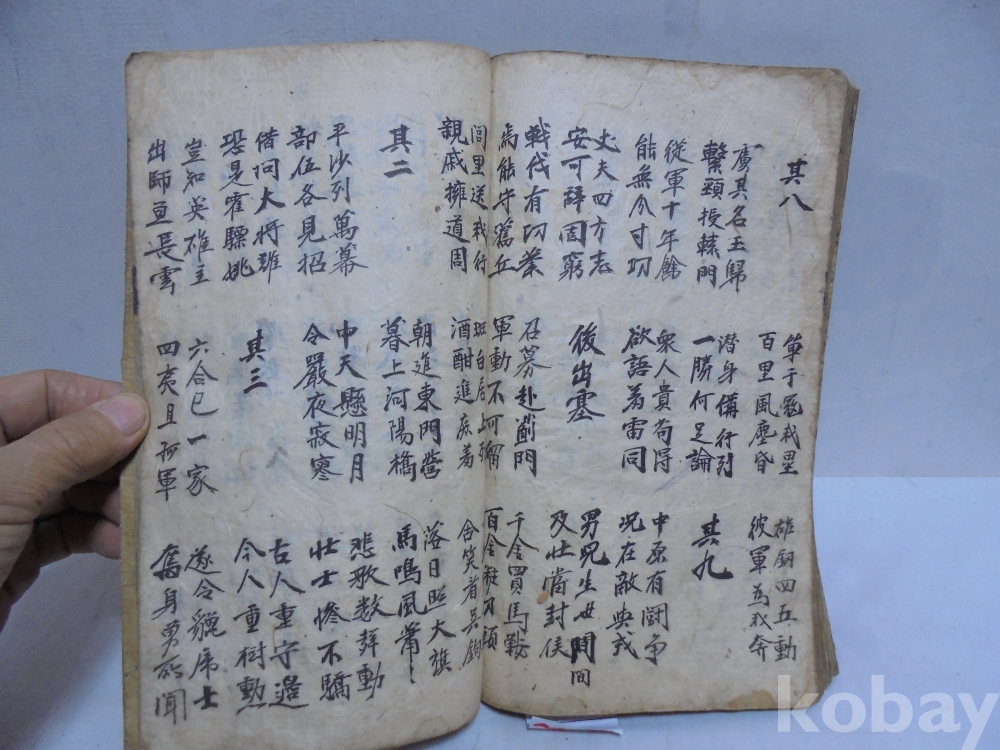 其八
單于寇我壘
百里風塵昏
雄劍四五動
彼軍為我奔
虜其名王歸
繫頸授轅門
潛身備行列
一勝何足論
其九
從軍十年餘
能無分寸功
衆人貴苟得
欲語羞雷同
中原有鬪爭
况在敵與戎
丈夫四方志
安可辭固窮
後出塞
男兒生世間間
及壯當封侯
戰伐有功業
焉能守舊丘
召募赴薊門
軍動不可留
千金買馬鞍
百金裝刀頭
閭里送我行
親戚擁道周
斑白居上列
酒酣進庶羞
含笑看吳鉤
其二
朝進東門營
暮上河陽橋
落日照大旗
馬鳴風蕭〻
平沙列萬幕
部伍各見招
中天懸明月
令嚴夜寂寥
悲歌數聲動
壯士慘不驕
借問大將誰
恐是霍驃姚
其三
古人重守邊
今人重樹勳
豈知英雄主
出師亘長雲
六合已一家
四夷且孤軍
遂令貔虎士
奮身勇所聞
kobay